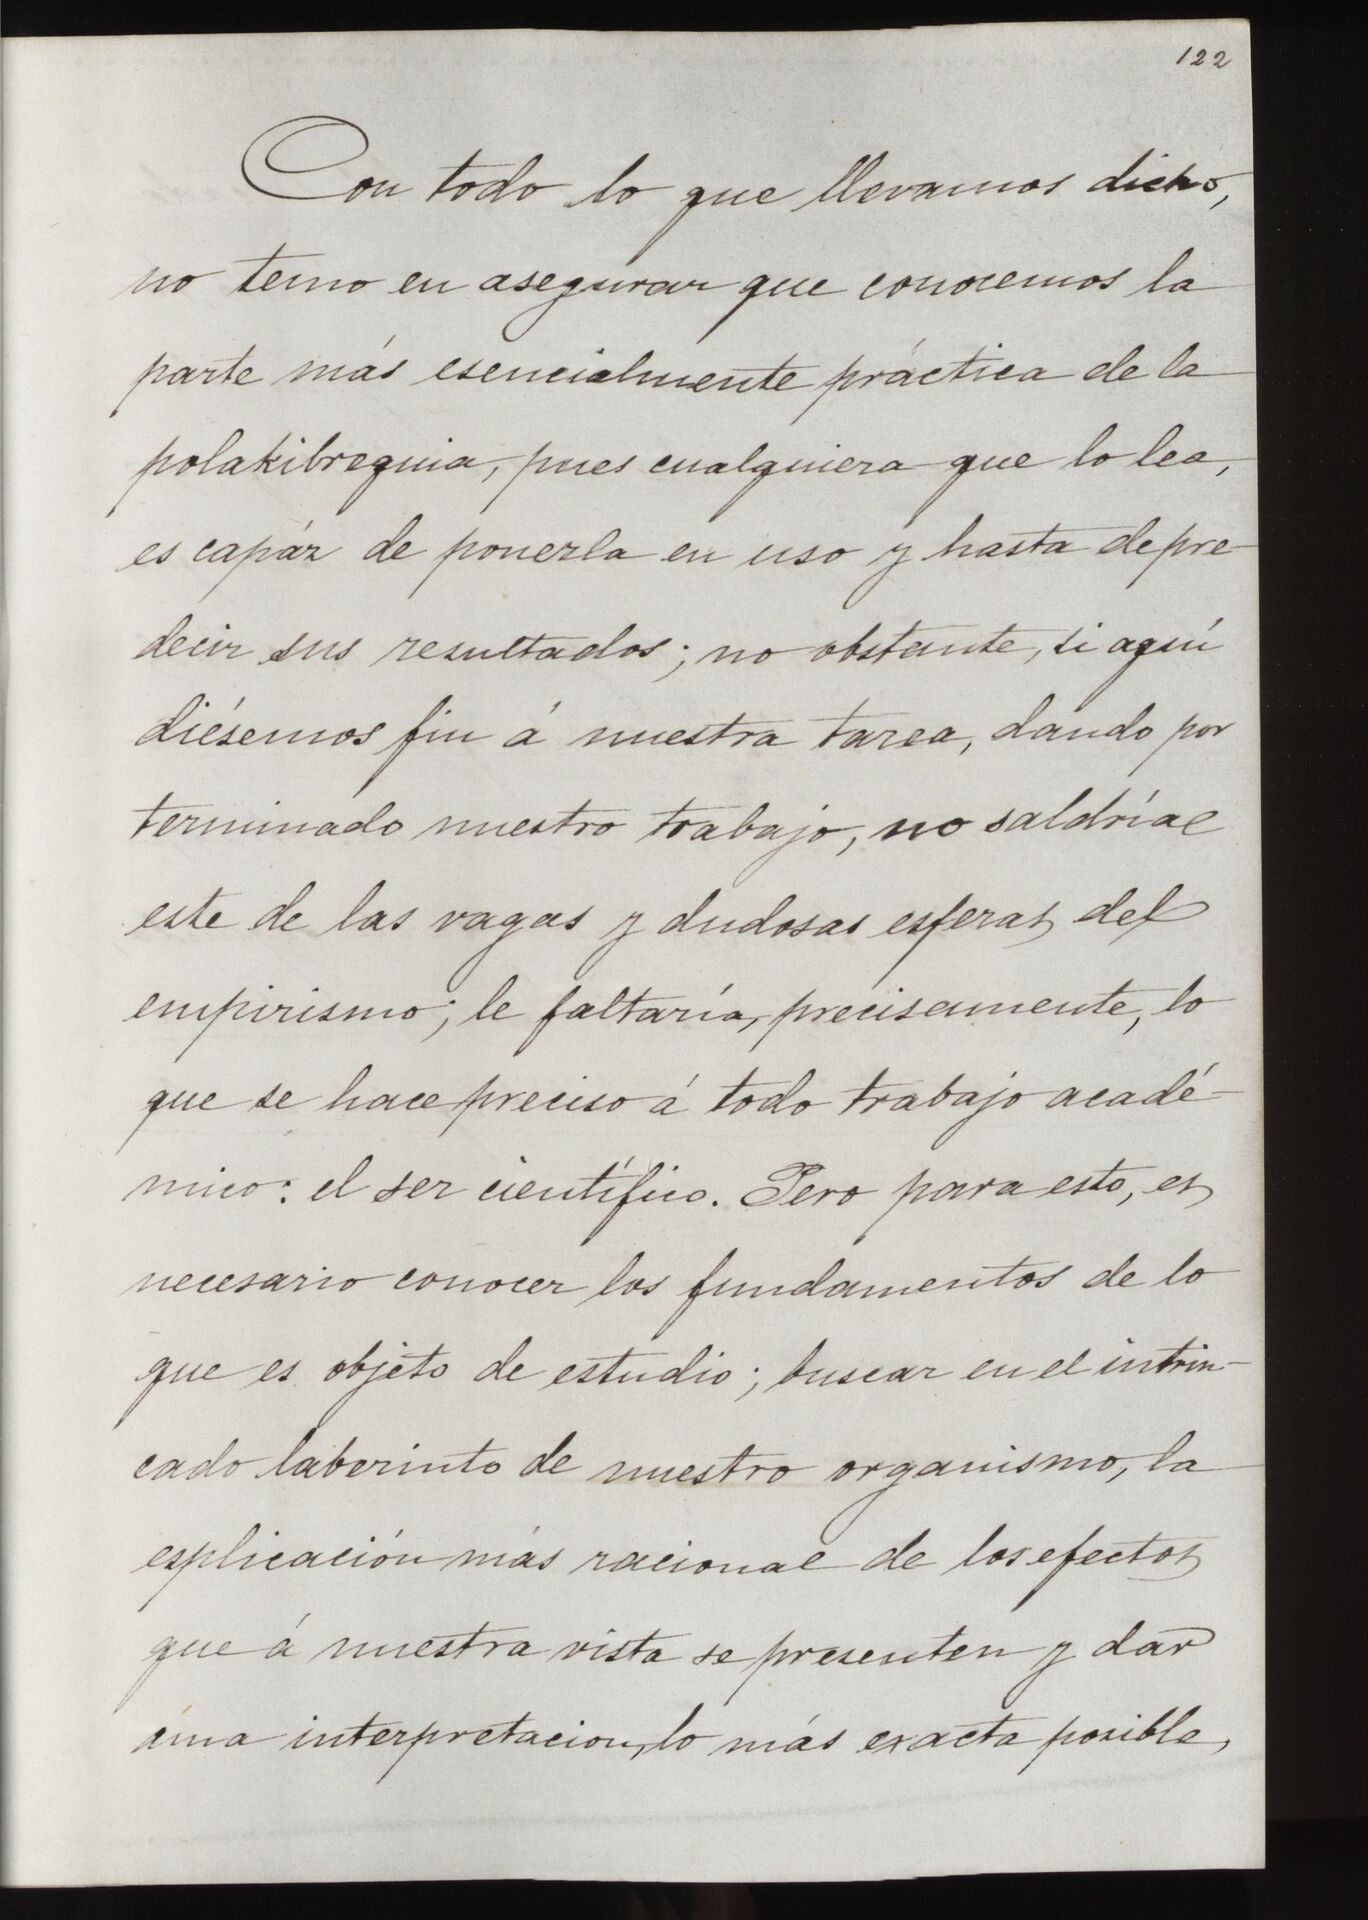 122
Con todo lo que llevamos dicho,
no temo en asegurar que conocemos la
parte más esencialmente práctica de la
polakibrequia, pues cualquiera que lo lea,
es capáz de ponerla en uso y hasta de pre-
decir sus resultados; no obstante, si aquí
diésemos fin á nuestra tarea, dando por
terminado nuestro trabajo, no saldría el
este de las vagas y dudosas esferas del
empirismo; le faltaría, precisamente, lo
que se hace preciso á todo trabajo acadé-
mico: el ser científico. Pero para esto, es
necesario conocer los fundamentos de lo
que es objeto de estudio; buscar en el intrin-
cado laberinto de nuestro organismo, la
esplicación más racional de los efectos
que á nuestra vista se presenten y dar
una interpretacion, lo más exacta posible,